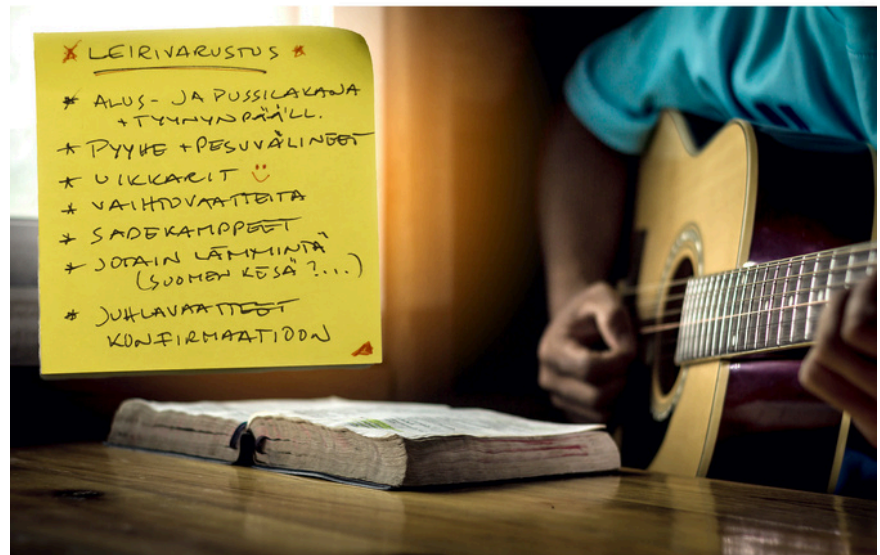 * LEIRIVARUSTUS *
* ALUS- JA PUSSILAKANA
+ TYYNYNPÄÄLL.
* PYYHE + PESUVÄLINEET
* UIKKARIT
* VAIHTOVAATTEITA
* SADEKAMPPEET
* JOTAIN LÄMMINTÄ
(SUOMEN KESÄ?...)
* JUHLAVAATTEET
KONFIRMAATIOON